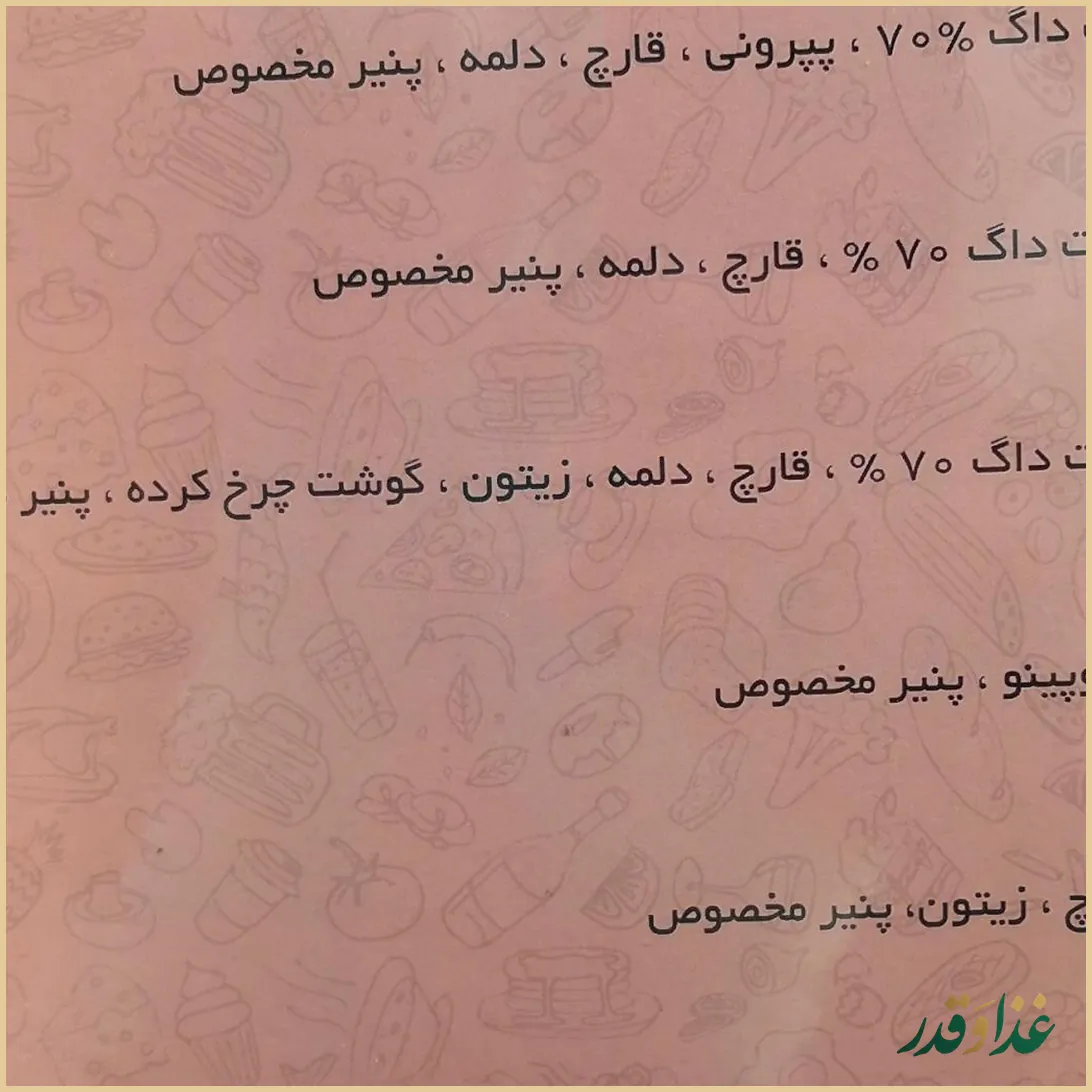 داگ %۷۰ ، پپرونی ، قارچ ، دلمه ، پنیر مخصوص
داگ ۷۰ % ، قارچ ، دلمه ، پنیر مخصوص
داگ ۷۰ % ، قارچ ، دلمه ، زیتون ، گوشت چرخ کرده ، پنیر
پنیر مخصوص
زیتون، پنیر مخصوص
غذا و قدر